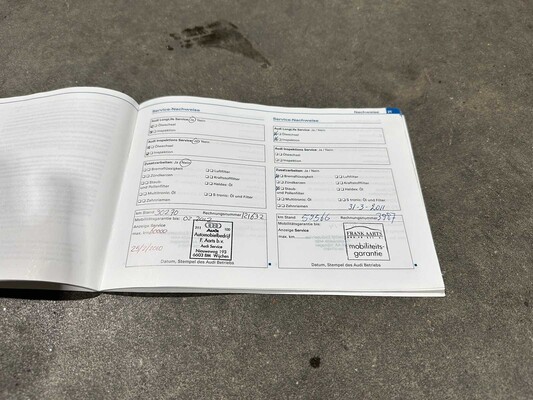 Service-Nachweise
Audi LongLife Service: Ja / Nein
Ölwechsel
Inspektion
Audi Inspektions Service: Ja / Nein
Ölwechsel
Inspektion
Zusatzarbeiten: Ja / Nein
Bremsflüssigkeit
Luftfilter
Zündkerzen
Kraftstofffilter
Staub- und Pollenfilter
Haldex Öl
Multitronic Öl
S tronic Öl und Filter
Zahnriemen
km Stand 30270
Rechnungsnummer
Mobilitätsgarantie bis:
Anzeige Service
Audi
Automobielbedrijf
T. Aarts b.v.
Audi Service
Nieuweweg 193
6603 BM Wijchen
Datum, Stempel des Audi Betriebs
Nachweise
Service-Nachweise
Audi LongLife Service: Ja / Nein
Ölwechsel
Inspektion
Audi Inspektions Service: Ja / Nein
Ölwechsel
Inspektion
Zusatzarbeiten: Ja / Nein
Bremsflüssigkeit
Luftfilter
Zündkerzen
Kraftstofffilter
Staub-
und Pollenfilter
Haldex Öl
Multitronic Öl
S tronic Öl und Filter
Zahnriemen
31-3-2011
km Stand
Rechnungsnummer
Mobilitätsgarantie bis:
Anzeige Service
max. km
FRANK AARTS
mobiliteits-
garantie
Datum, Stempel des Audi Betriebs